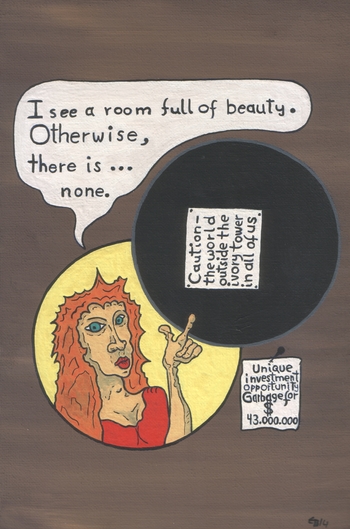 I see a room full of beauty.
Otherwise,
there is ...
none.
Caution-
the world
outside the
ivory tower
in all of us.
Unique
investment
opportunity
Garbage for
$
43.000.000